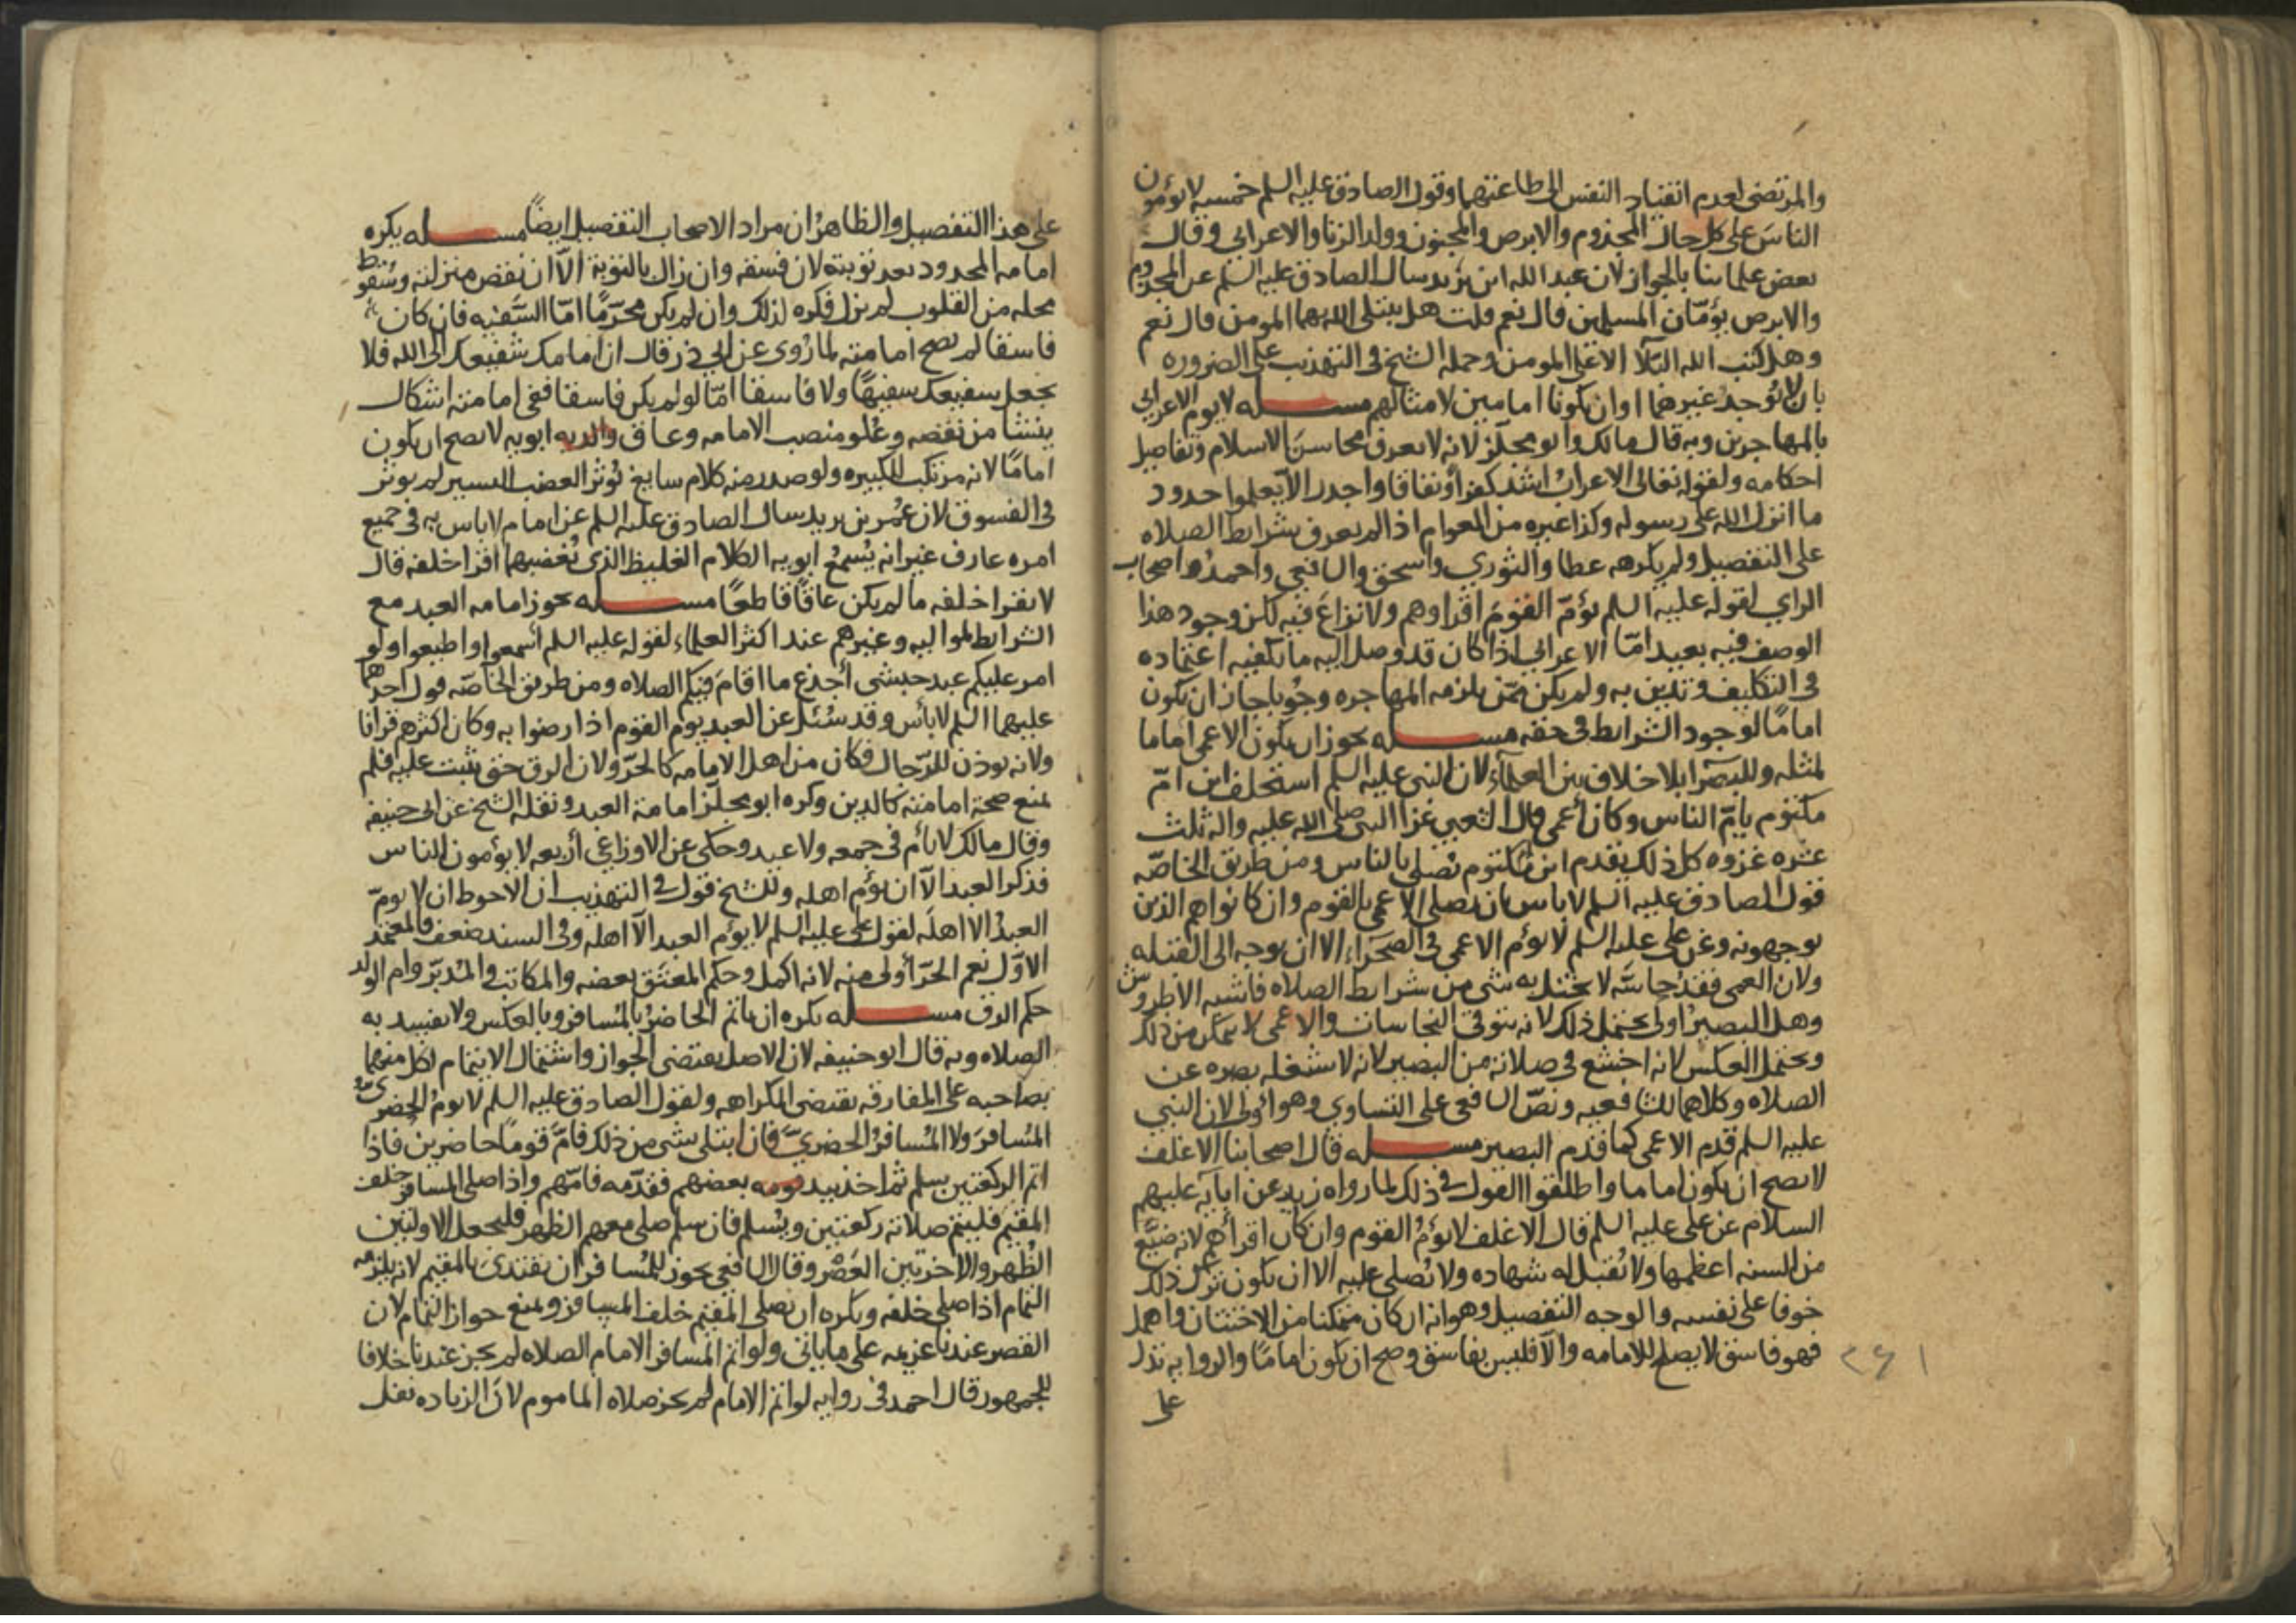 والمرتضى لعدم انقياد النفس الى طاعتهما وقول الصادق عليه السلم خمسه لا يؤمون
الناس على كل حال المجذوم والابرص والمجنون وولد الزنا والاعرابي وقال
بعض علمائنا بالجواز لان عبد الله ابن يزيد سال الصادق عليه السلم عن المجذوم
والابرص يؤمّان المسلمين قال نعم قلت هل يبتلى الله بهما المومن قال نعم
وهل كتب الله البلآ الا على المومن وحمله الشيخ في التهذيب على الضروره
بان لا يُوجد غيرهما او ان يكونا امامين لامثالهم مسـله لا يوم الاعرابي
بالمهاجرين وبه قال مالك وابو مجلز لانه لا يعرف محاسن الاسلام وتفاصيل
احكامه ولقوله تعالى الاعراب اشد كفرا ونفاقا واجدر الا يعلموا حدود
ما انزل الله على رسوله وكذا غيره من العوام اذا لم يعرف شرايط الصلاه
على التفصيل ولم يكرهه عطا والثوري واسحق والشافعي واحمد واصحاب
الراي لقوله عليه السلم يؤمّ القوم اقراوهم ولا نزاع فيه لكن وجود هذا
الوصف فيه بعيد امّا الاعرابي اذا كان قد وصل اليه ما يكفيه اعتماده
في التكليف وتدين به ولم يكن ممّن يلزمه المهاجره وجُوبا جاز ان يكون
امامًا لوجود الشرايط في حقه مسـله يجوز ان يكون الاعمى اماما
لمثله وللبصرا بلا خلاف بين العلمآء لان النبي عليه السلم استخلف ابن امّ
مكتوم يامّ الناس وكان أعمى قال الشعبي غزا النبي صلى الله عليه واله ثلث
عشره غزوه كل ذلك يقدم ابن مكتوم يُصلي بالناس ومن طريق الخاصّه
قول الصادق عليه السلم لا باس بان يصلى الاعمى بالقوم وان كانوا هم الذين
يوجهونه وعن على عليه السلم لا يؤم الاعمى في الصحرآء الا ان يوجه الى القبله
ولان العمى فقدُ حاسّه لا يختل به شى من شرايط الصلاه فاشبه الاطروش
وهل البصيرُ اولى يحتمل ذلك لانه يتوقى النجاسات والاعمى لا يتمكن من ذلك
ويحتمل العكس لانه اخشع في صلاته من البصير لانه لا يشغله بصره عن
الصلاه وكلاهما للشافعيه ونصّ الشافعى على التساوي وهو أولى لان النبي
عليه السلم قدم الاعمى كما قدم البصير مسـله قال اصحابنا الاغلف
لا يصح ان يكون اماما واطلقوا القول في ذلك لما رواه زيد عن ابآيه عليهم
السلام عن على عليه السلم قال الاغلف لا يؤمُ القوم وان كان اقراهم لانه ضيَّع
من السنه اعظمها ولا تُقبل له شهاده ولا يُصلى عليه الا ان يكون ترك ذلك
خوفا على نفسه والوجه التفصيل وهو انه ان كان متمكنا من الاختتان واهمل
فهو فاسق لا يصلح للامامه والا فليس بفاسق وصح ان يكون امامًا والروايه تدل
على
على هذا التفصيل والظاهرُ ان مراد الاصحاب التفصيل ايضاً مسـله يكره
امامه المحدود بعد توبته لان فسقه وان زال بالتوبة الّا ان نقص منزلته وسُقوط
محله من القلوب لم يزل فكره لذلك وان لم يكن محرّمًا امّا السَّفيه فان كان
فاسقا لم يصح امامته لما رُوى عن ابي ذر قال ان امامك شفيعك الى الله فلا
تجعل سفيعك سفيهًا ولا فاسقا امّا لو لم يكن فاسقا ففى امامته اشكال
ينشا من نقصه وعُلو منصب الامامه وعاق والديه ابويه لا يصح ان يكون
امامًا لانه مرتكب للكبيره ولو صدر منه كلام سايغ يُوثر الغضب اليسير لم يوثر
في الفسوق لان عُمر بن يزيد سال الصادق عليه السلم عن امام لا باس به في جميع
امره عارف غير انه يُسمعُ ابويه الكلام الغليظ الذى يُغضبهما اقرا خلفه قال
لا تقرا خلفه ما لم يكن عاقًا قاطعًا مسـله يجوز امامه العبد مع
الشرايط لمواليه وغيرهم عند اكثر العلمآء لقوله عليه السلم اسمعوا واطيعوا ولو
امر عليكم عبد حبشى أجدع ما اقام فيكم الصلاه ومن طريق الخاصّه قول احدهما
عليهما السلم لا بأس وقد سُئل عن العبد يوم القوم اذا رضوا به وكان اكثرهم قرانا
ولانه يوذن للرّجال فكان من اهل الامامه كالحرّ ولان الرق حق يثبت عليه فلم
يمنع صحة امامته كالدين وكره ابو مجلز امامة العبد ونقله الشيخ عن ابى حنيفه
وقال مالك لا يأم في جمعه ولا عيد وحكى عن الاوزاعي أربعه لا يؤمون الناس
فذكر العبد الّا ان يؤم اهله وللشيخ قول في التهذيب ان الاحوط ان لا يومّ
العبدُ الا اهلَه لقول على عليه السلم لا يؤم العبد الّا اهله وفى السند ضعف فالمعتمد
الاوّل نعم الحرّ أولى منه لانه اكمل وحكم المعتَق بعضه والمكاتب والمُدبّر وام الولد
حكم الرق مسـله يكره ان ياتم الحاضرُ بالمُسافر وبالعكس ولا يفسد به
الصلاه وبه قال ابو حنيفه لان الاصل يقتضى الجواز واشتمال الايتمام لكل منهما
بصاحبه على المفارقه يقتضى الكراهه ولقول الصادق عليه السلم لا يومُ الحضرىُّ
المُسافرَ ولا المُسافرُ الحضريَّ فان ابتلى بشى من ذلك فامَّ قومًا حاضرين فاذا
اتم الركعتين سلم ثم اخذ بيد بعضهم فقدّمه فامّهم واذا صلى المسافر خلف
المقيم فليتم صلاته ركعتين ويُسلم فان صلى معهم الظهر فليجعل الاولتين
الظُهر والاخرتين العَصْر وقال الشافعي يجوز للمُسافر ان يقتدى بالمقيم لانه يلزمه
التمام اذا صلى خلفه ويكره ان يصلى المقيم خلف المسافر ونمنع جواز التمام لان
القصر عندنا عزيمه على ما ياتى ولو اتم المسافر الامام الصلاه لم يجز عندنا خلافا
للجمهور قال احمد في روايه لو اتم الامام لم يجز صلاه الماموم لان الزياده نفل